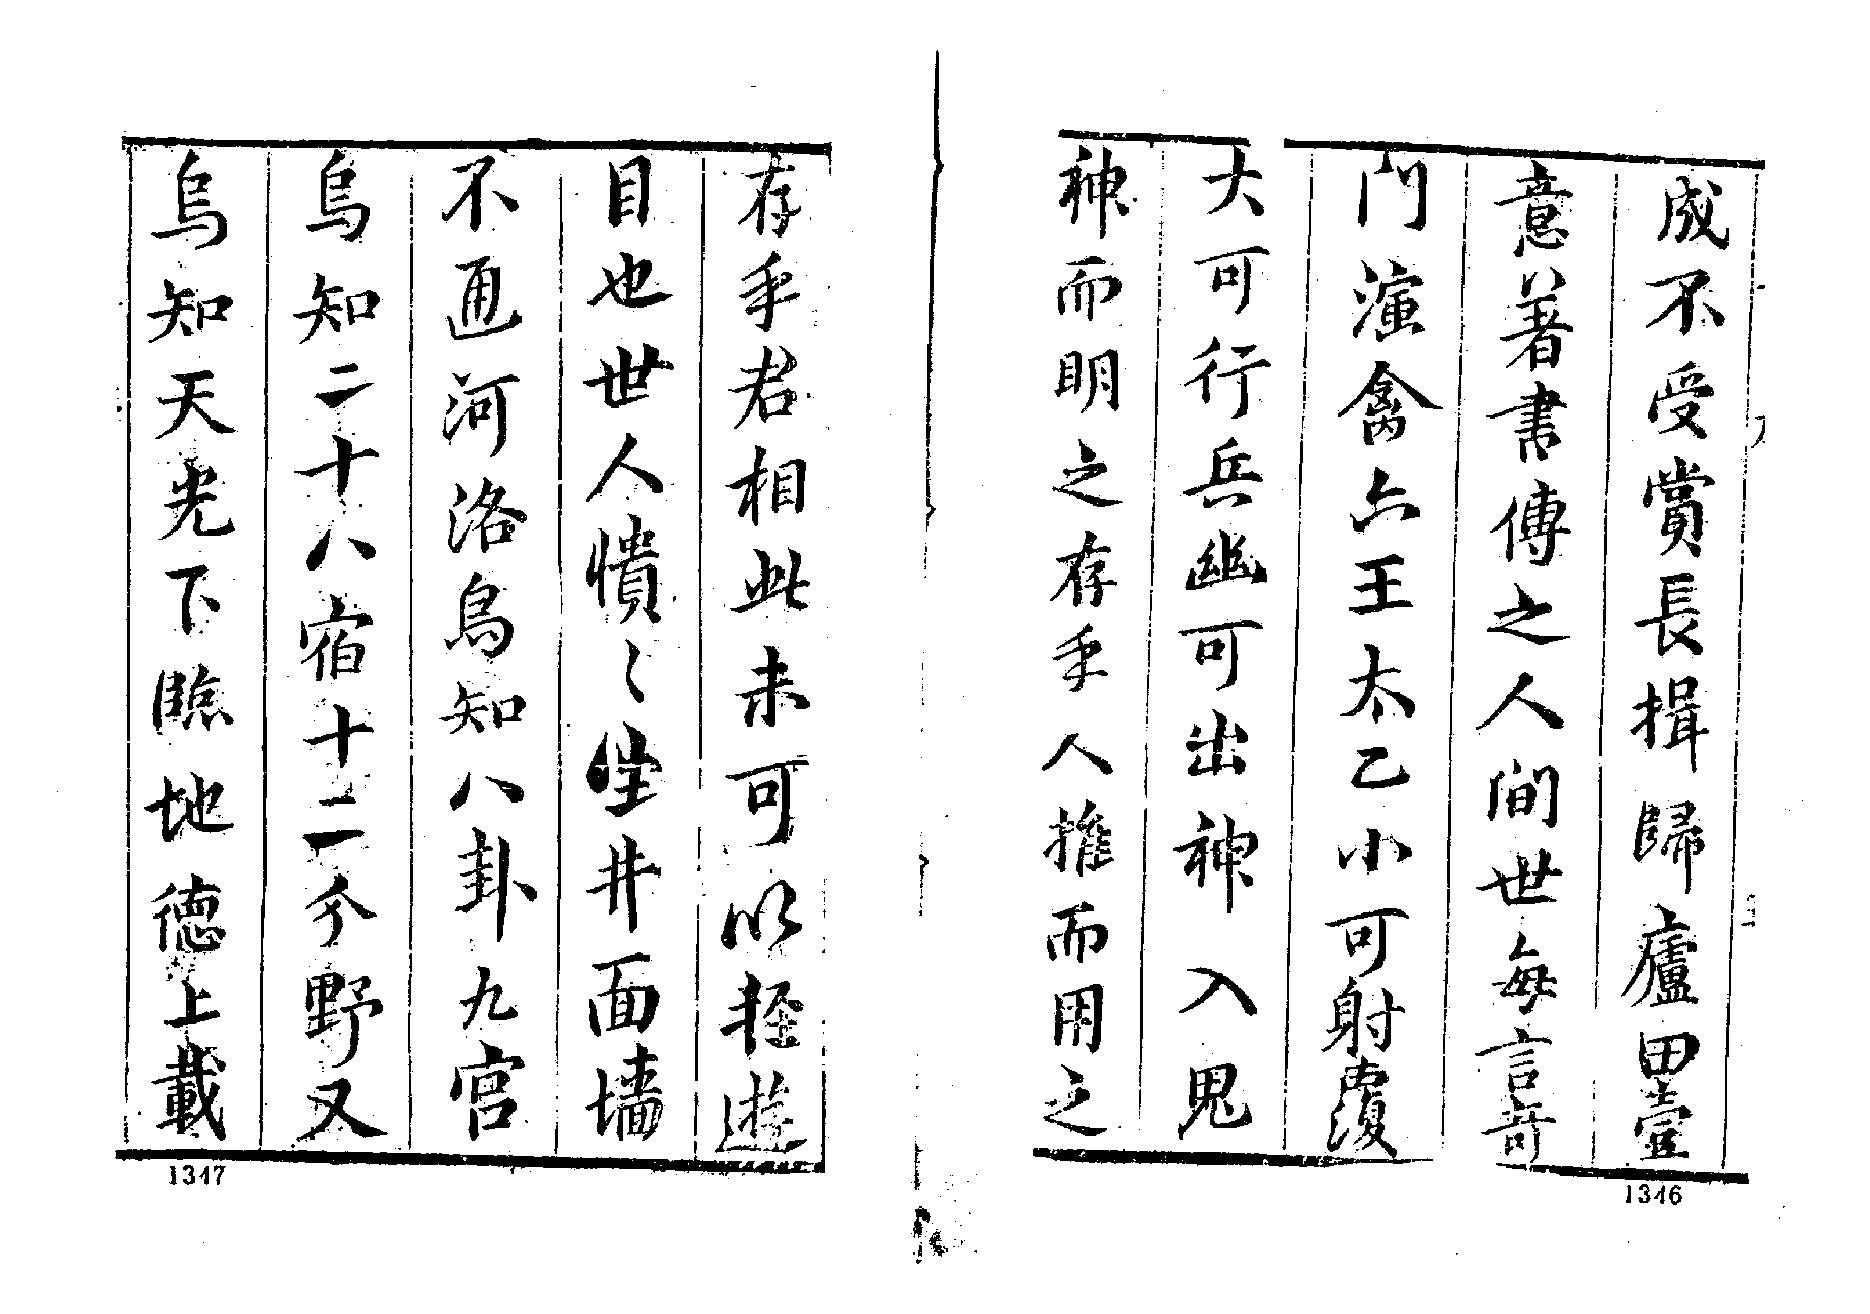 成不受賞長揖歸廬思壹
意著書傳之人间世每言奇
门演禽六壬太乙小可射覆
大可行兵幽可出神入鬼
神而明之存乎人推而用之
1346
存乎君相此未可以輕遊
目也世人憒〻坐井面墻
不通河洛烏知八卦九宫
烏知二十八宿十二分野又
烏知天光下臨地德上載
1347